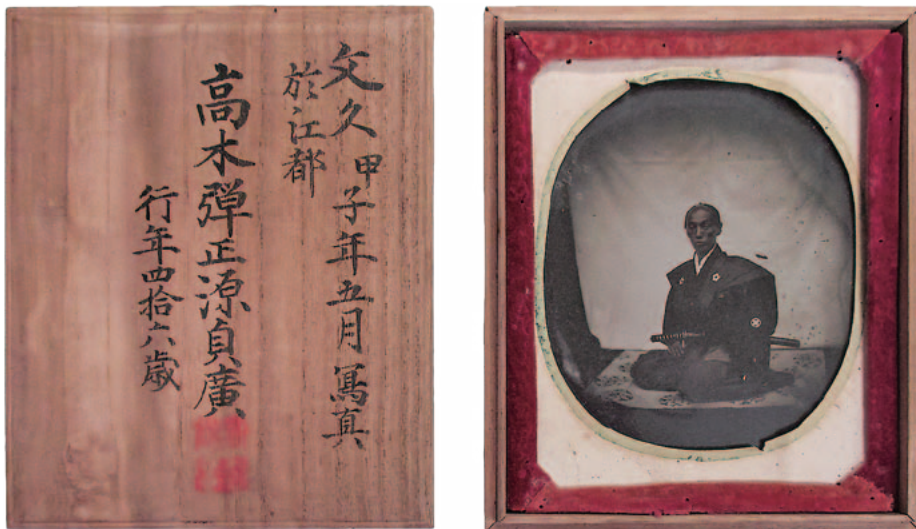 文久甲子年五月寫真
於江都
高木弾正源貞廣
行年四拾六歳